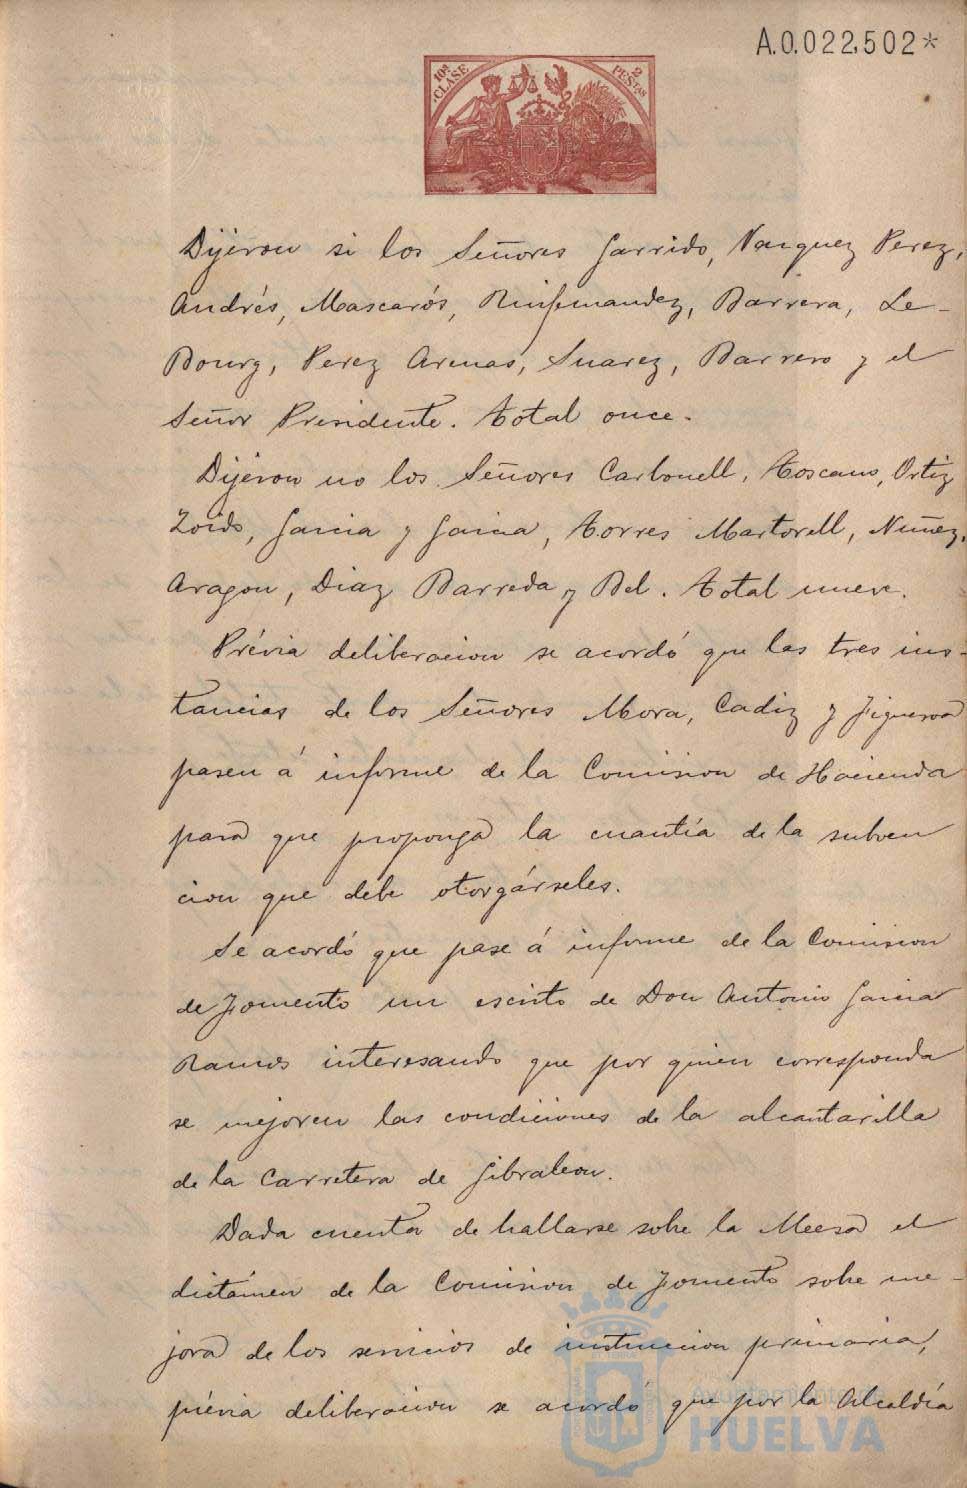 A.0.022,502*
10ª CLASE 2 PESETAS
Dijéron si los Señores Garrido, Vazquez Perez,
Andrés, Mascarós, Quifernandez, Barrera, Le-
Bourg, Perez Arenas, Suarez, Barrero y el
Señor Presidente. Total once.
Dijéron no los Señores Carbonell, Toscano, Ortiz
Zoido, Garcia y Garcia, Torres Martorell, Nuñez,
Aragon, Diaz Barreda y Bel. Total nueve.
Prévia deliberacion se acordó que las tres ins-
tancias de los Señores Mora, Cadiz y Figueroa
pasen á informe de la Comision de Hacienda
para que proponga la cuantía de la subven
cion que debe otorgárseles.
Se acordó que pase á informe de la Comision
de Fomento un escrito de Don Antonio Garcia
Ramos interesando que por quien corresponda
se mejoren las condiciones de la alcantarilla
de la Carretera de Gibraleon.
Dada cuenta de hallarse sobre la Meesa el
dictámen de la Comision de Fomento sobre me-
jora de los servicios de instruccion primaria,
prévia deliberacion se acordó que por la Alcaldía
Ayuntamiento de
HUELVA